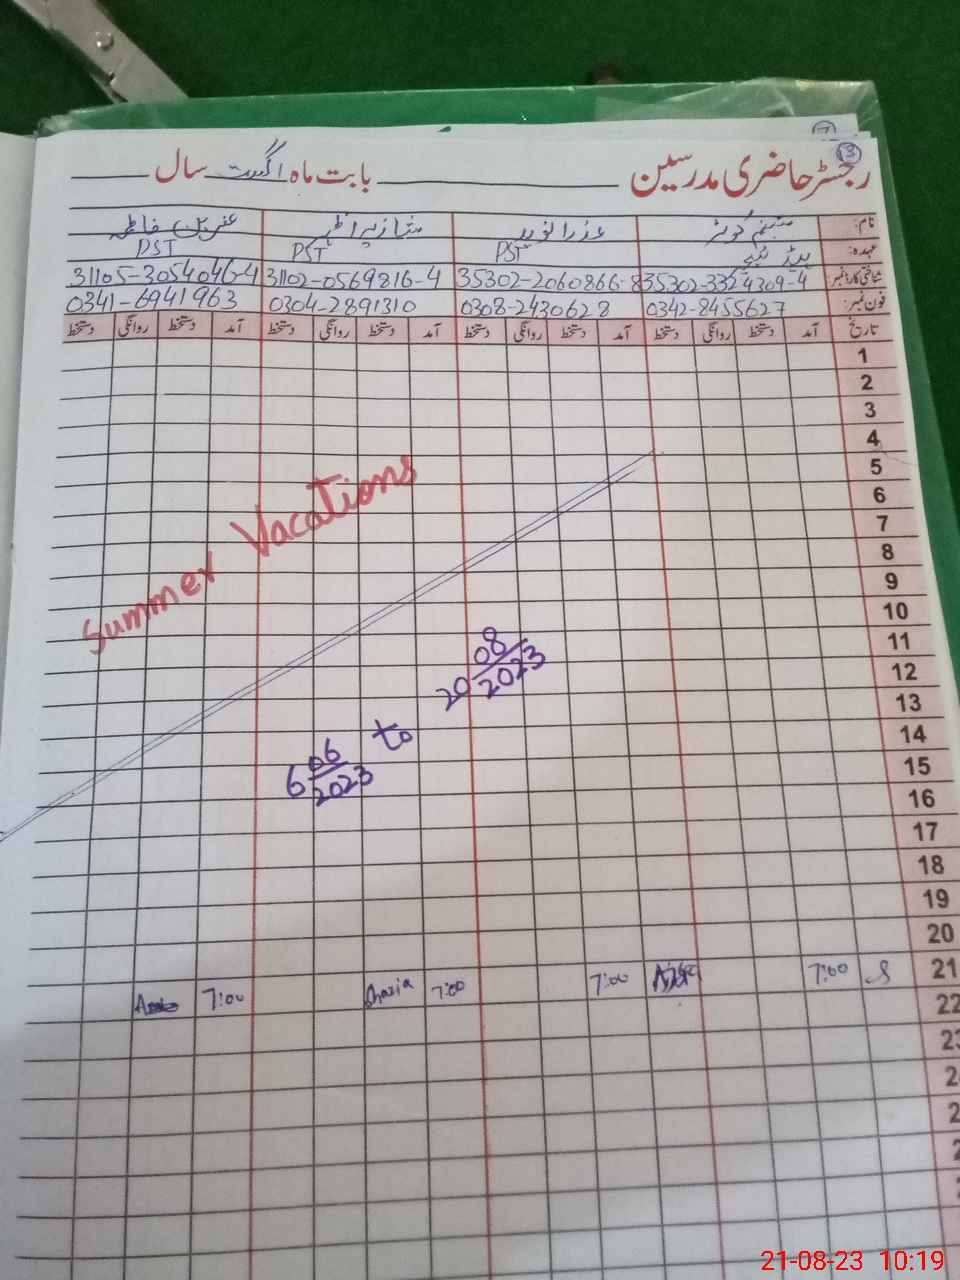 7
13
رجسٹر حاضری مدرسین بابت ماہ اگست سال
نام: عذرا نوید شازیہ اظہر عنبرین فاطمہ
عہدہ: ہیڈ ٹیچر PST PST PST
شناختی کارڈ نمبر: 35302-3324309-4 35302-2060866-8 31102-0569816-4 31105-3054046-4
فون نمبر: 0342-8455627 0308-2430628 0304-2891310 0341-6941963
تاریخ آمد دستخط روانگی دستخط آمد دستخط روانگی دستخط آمد دستخط روانگی دستخط آمد دستخط روانگی دستخط
1
2
3
4
5
6
7
8
9
10
11
12
13
14
15
16
17
18
19
20
Summer Vacations
6 06/2023 to 20 08/2023
21 7:00 7:00 7:00 Shazia 7:00
22
21-08-23 10:19